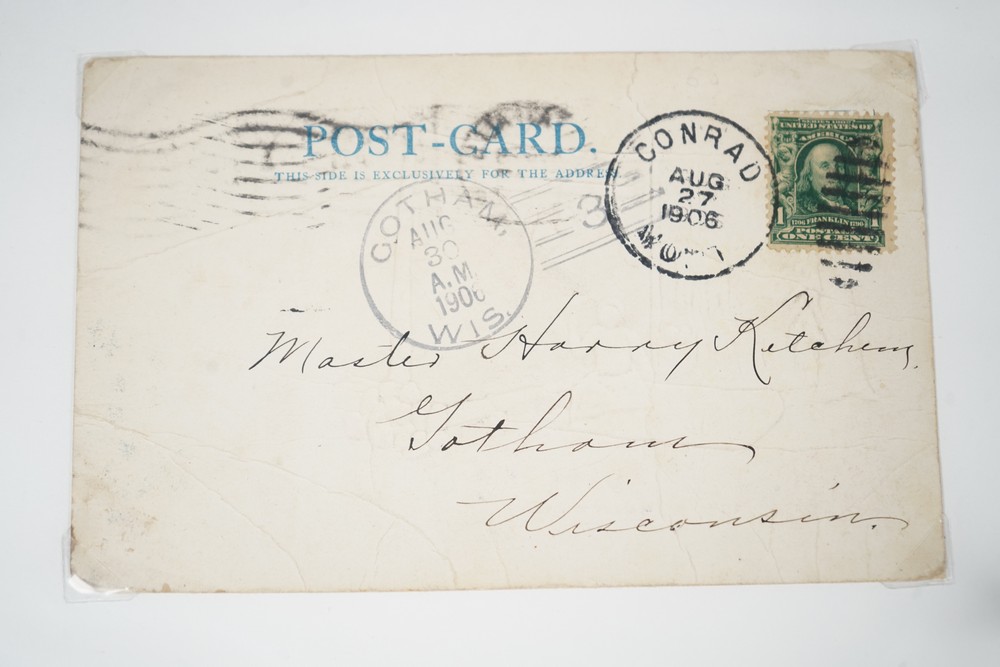 POST-CARD.
THIS SIDE IS EXCLUSIVELY FOR THE ADDRESS.
CONRAD
AUG
27
1906
MONT
SERIES 1902
UNITED STATES OF
1 1
1706 FRANKLIN 1790
POSTAGE
ONE CENT
GOTHAM,
AUG
30
A.M.
1906
WIS.
3
Master Harry Ketchem,
Gotham
Wisconsin.